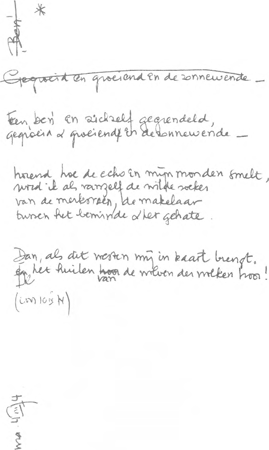 Ben
*
Gegroeid en groeiend en de zonnewende –
Een ben en zichzelf gegrendeld,
gegroeid & groeiend en de zonnewende –
horend hoe de echo in mijn monden smelt,
word ik als vanzelf de wilde zoeker
van de, de makelaar
tussen het beminde & het gehate.
Dan, als dit westen mij in kaart brengt.
De het huilen van de wolven der wolken hoor!